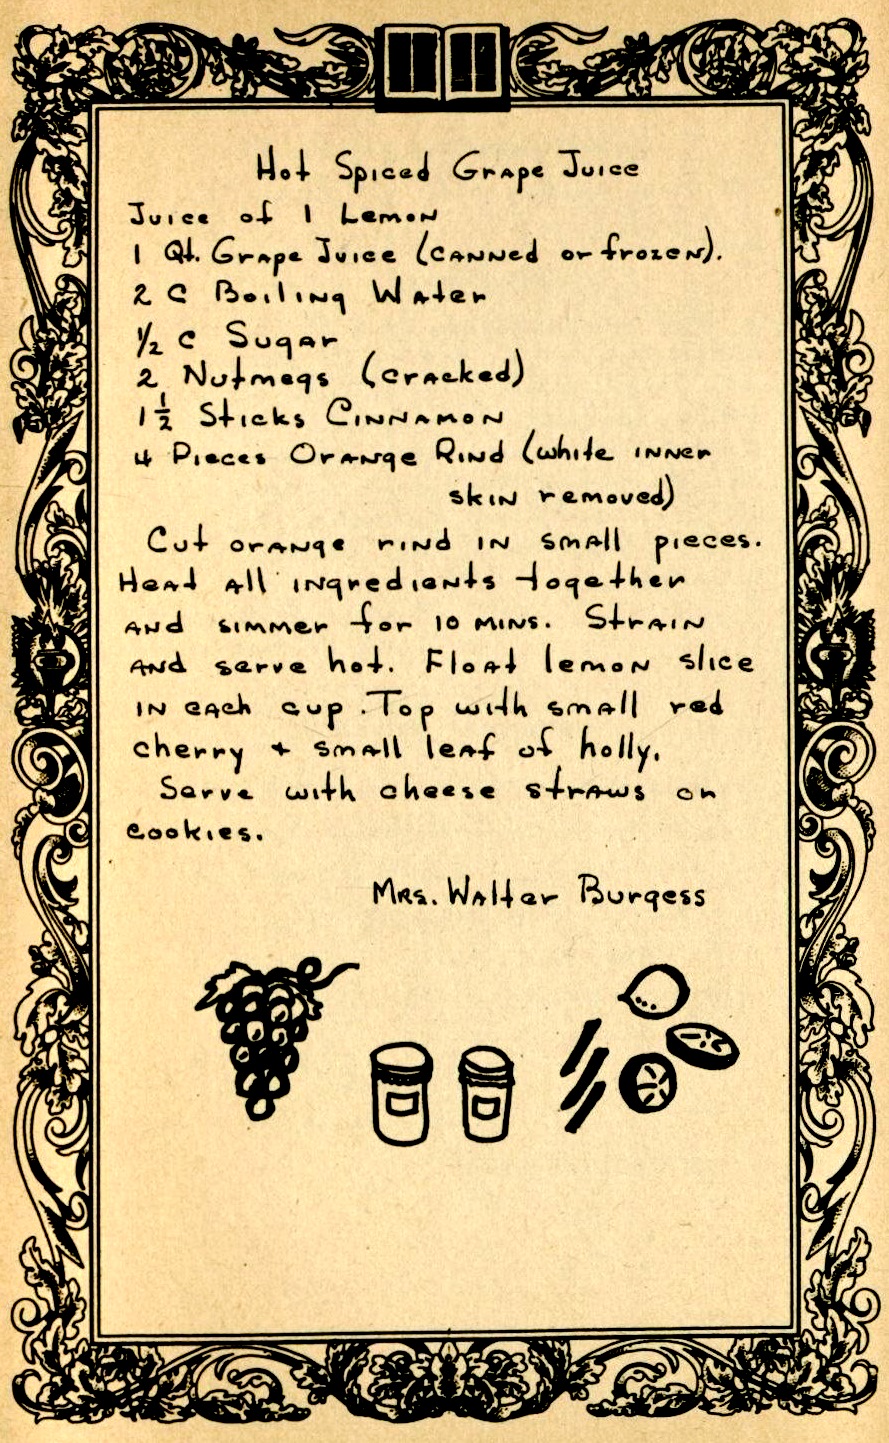 Hot Spiced Grape Juice
Juice of 1 Lemon
1 Qt. Grape Juice (canned or frozen).
2 C Boiling Water
½ C Sugar
2 Nutmegs (cracked)
1½ Sticks Cinnamon
4 Pieces Orange Rind (white inner
skin removed)
Cut orange rind in small pieces.
Heat all ingredients together
and simmer for 10 mins. Strain
and serve hot. Float lemon slice
in each cup. Top with small red
cherry + small leaf of holly.
Serve with cheese straws or
cookies.
Mrs. Walter Burgess